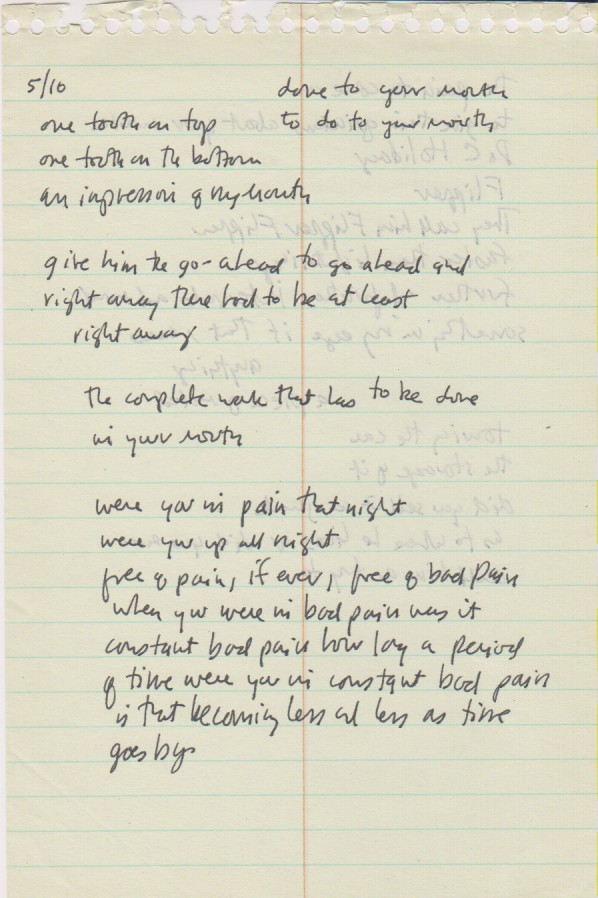 5/10
done to your mouth
one tooth on top
to do to your mouth
one tooth on the bottom
an impression of my mouth
give him the go-ahead to go ahead and
right away there had to be at least
right away
the complete work that has to be done
in your mouth
were you in pain that night
were you up all night
free of pain, if ever, free of bad pain
when you were in bad pain was it
constant bad pain how long a period
of time were you in constant bad pain
is that becoming less and less as time
goes by